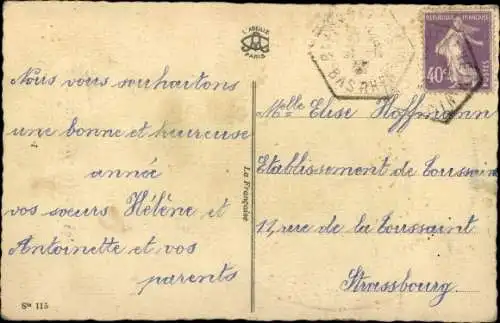 L'ABEILLE
PARIS
Nous vous souhaitons
une bonne et heureuse
année
vos sœurs Hélène et
Antoinette et vos
parents
Sie 115
La Française
BAS RHIN
40c
POSTES
Melle Elise Hoffmann
Etablissement de Toussain
12, rue de la Toussaint
Strassbourg.